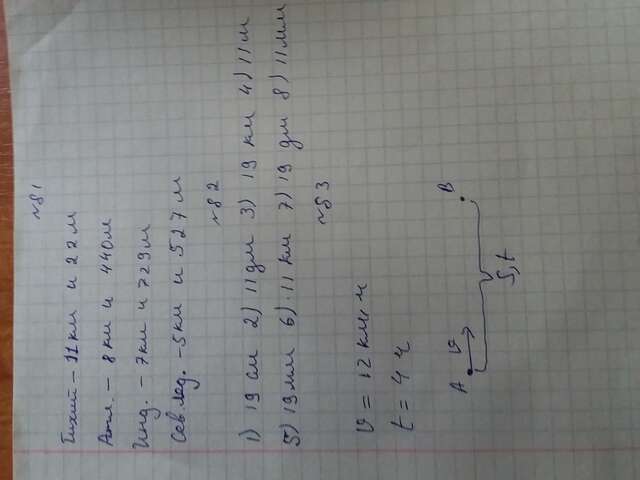 №81
Тихий - 11 км и 22 м
Атл. - 8 км и 440 м
Инд. - 7 км и 729 м
Сев.лед. - 5 км и 527 м
№82
1) 19 см 2) 11 дм 3) 19 км 4) 11 м
5) 19 мм 6) 11 км 7) 19 дм 8) 11 мм
№83
v = 12 км/ч
t = 4 ч
A v B
S, t